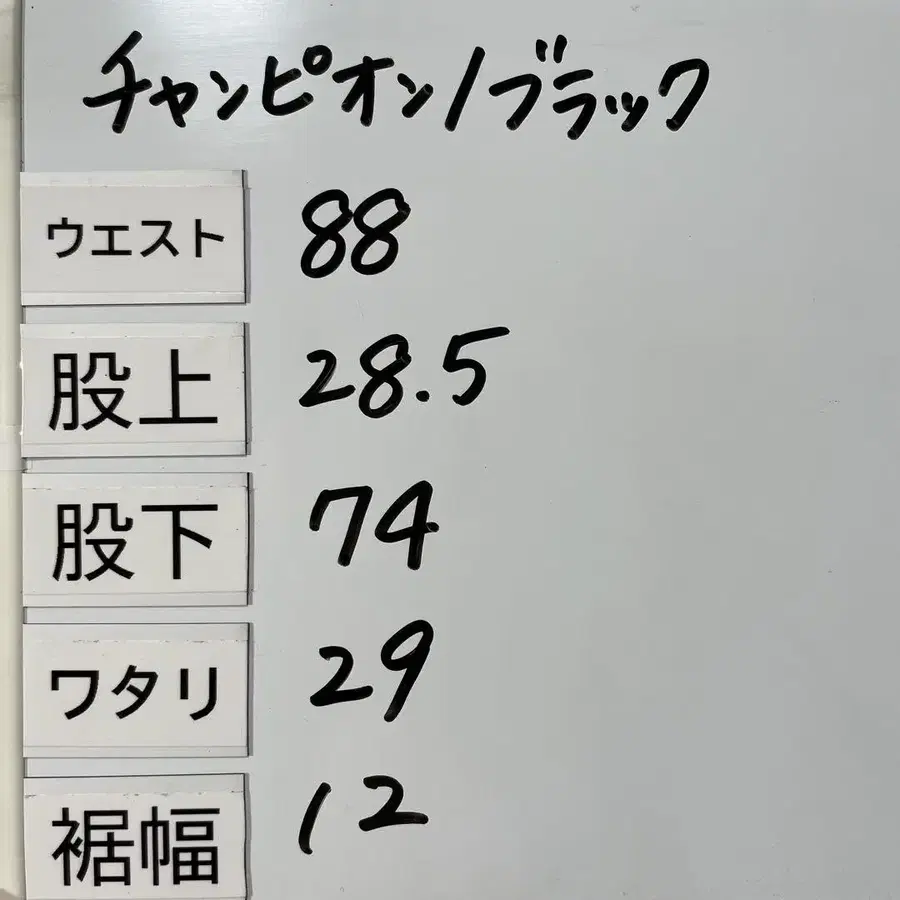 チャンピオン/ブラック
ウエスト 88
股上 28.5
股下 74
ワタリ 29
裾幅 12